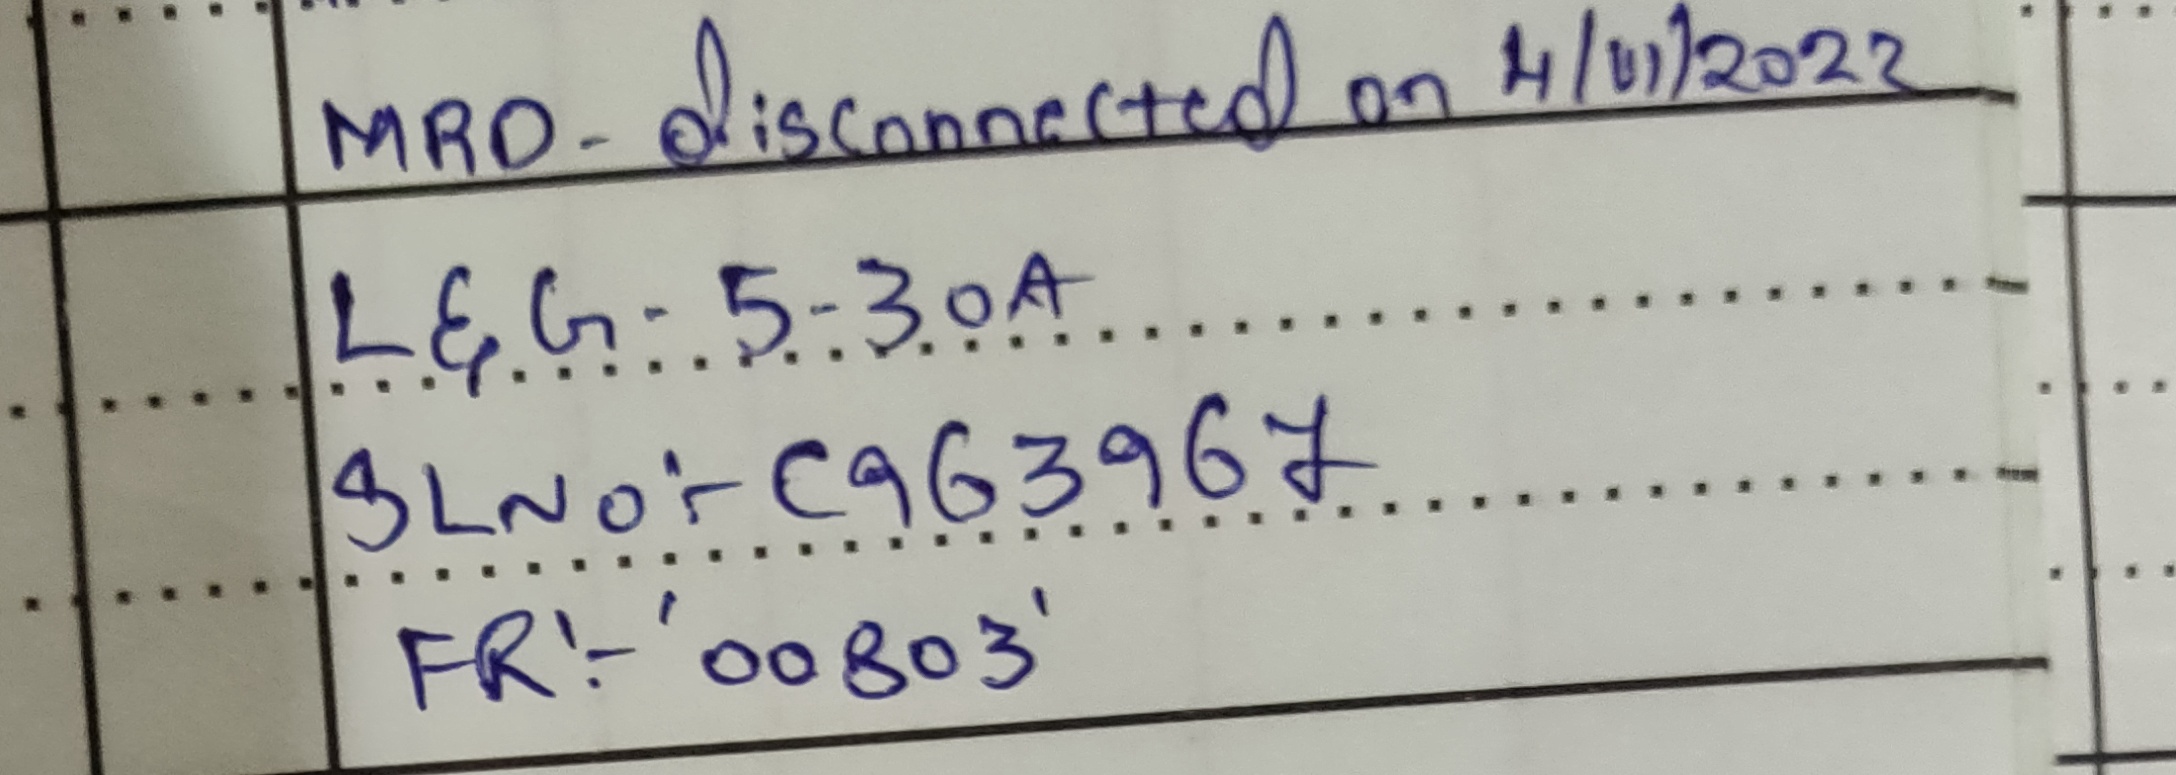 MRD - disconnected on 4/01/2022
L&G - 5-30A
SLNO:- C963967
FR:- '00803'